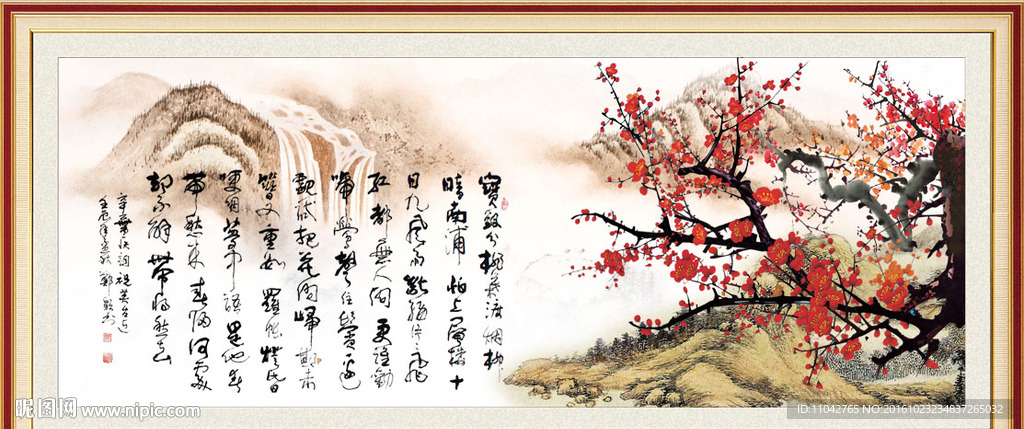 寶釵分桃葉渡烟柳
暗南浦怕上層樓十
日九風雨斷腸片片飛
紅都無人更誰勸
啼鶯聲住鬢邊
覷試把花卜歸期
簪又重數羅帳燈昏
哽咽夢中語是他春
帶愁來春歸何處
却不解帶將愁去
辛棄疾詞祝英台近
壬辰年
昵图网 www.nipic.com
ID:11042765 NO:20161023234837265032